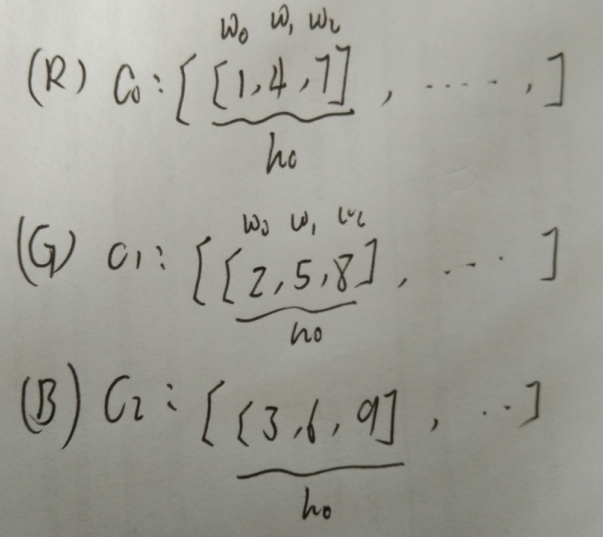 w₀ w₁ w₂
(R) C₀ : [ [1,4,7] , ..... , ]
h₀
w₀ w₁ w₂
(G) C₁ : [ [2,5,8] , .... ]
h₀
(B) C₂ : [ [3,6,9] , .. ]
h₀